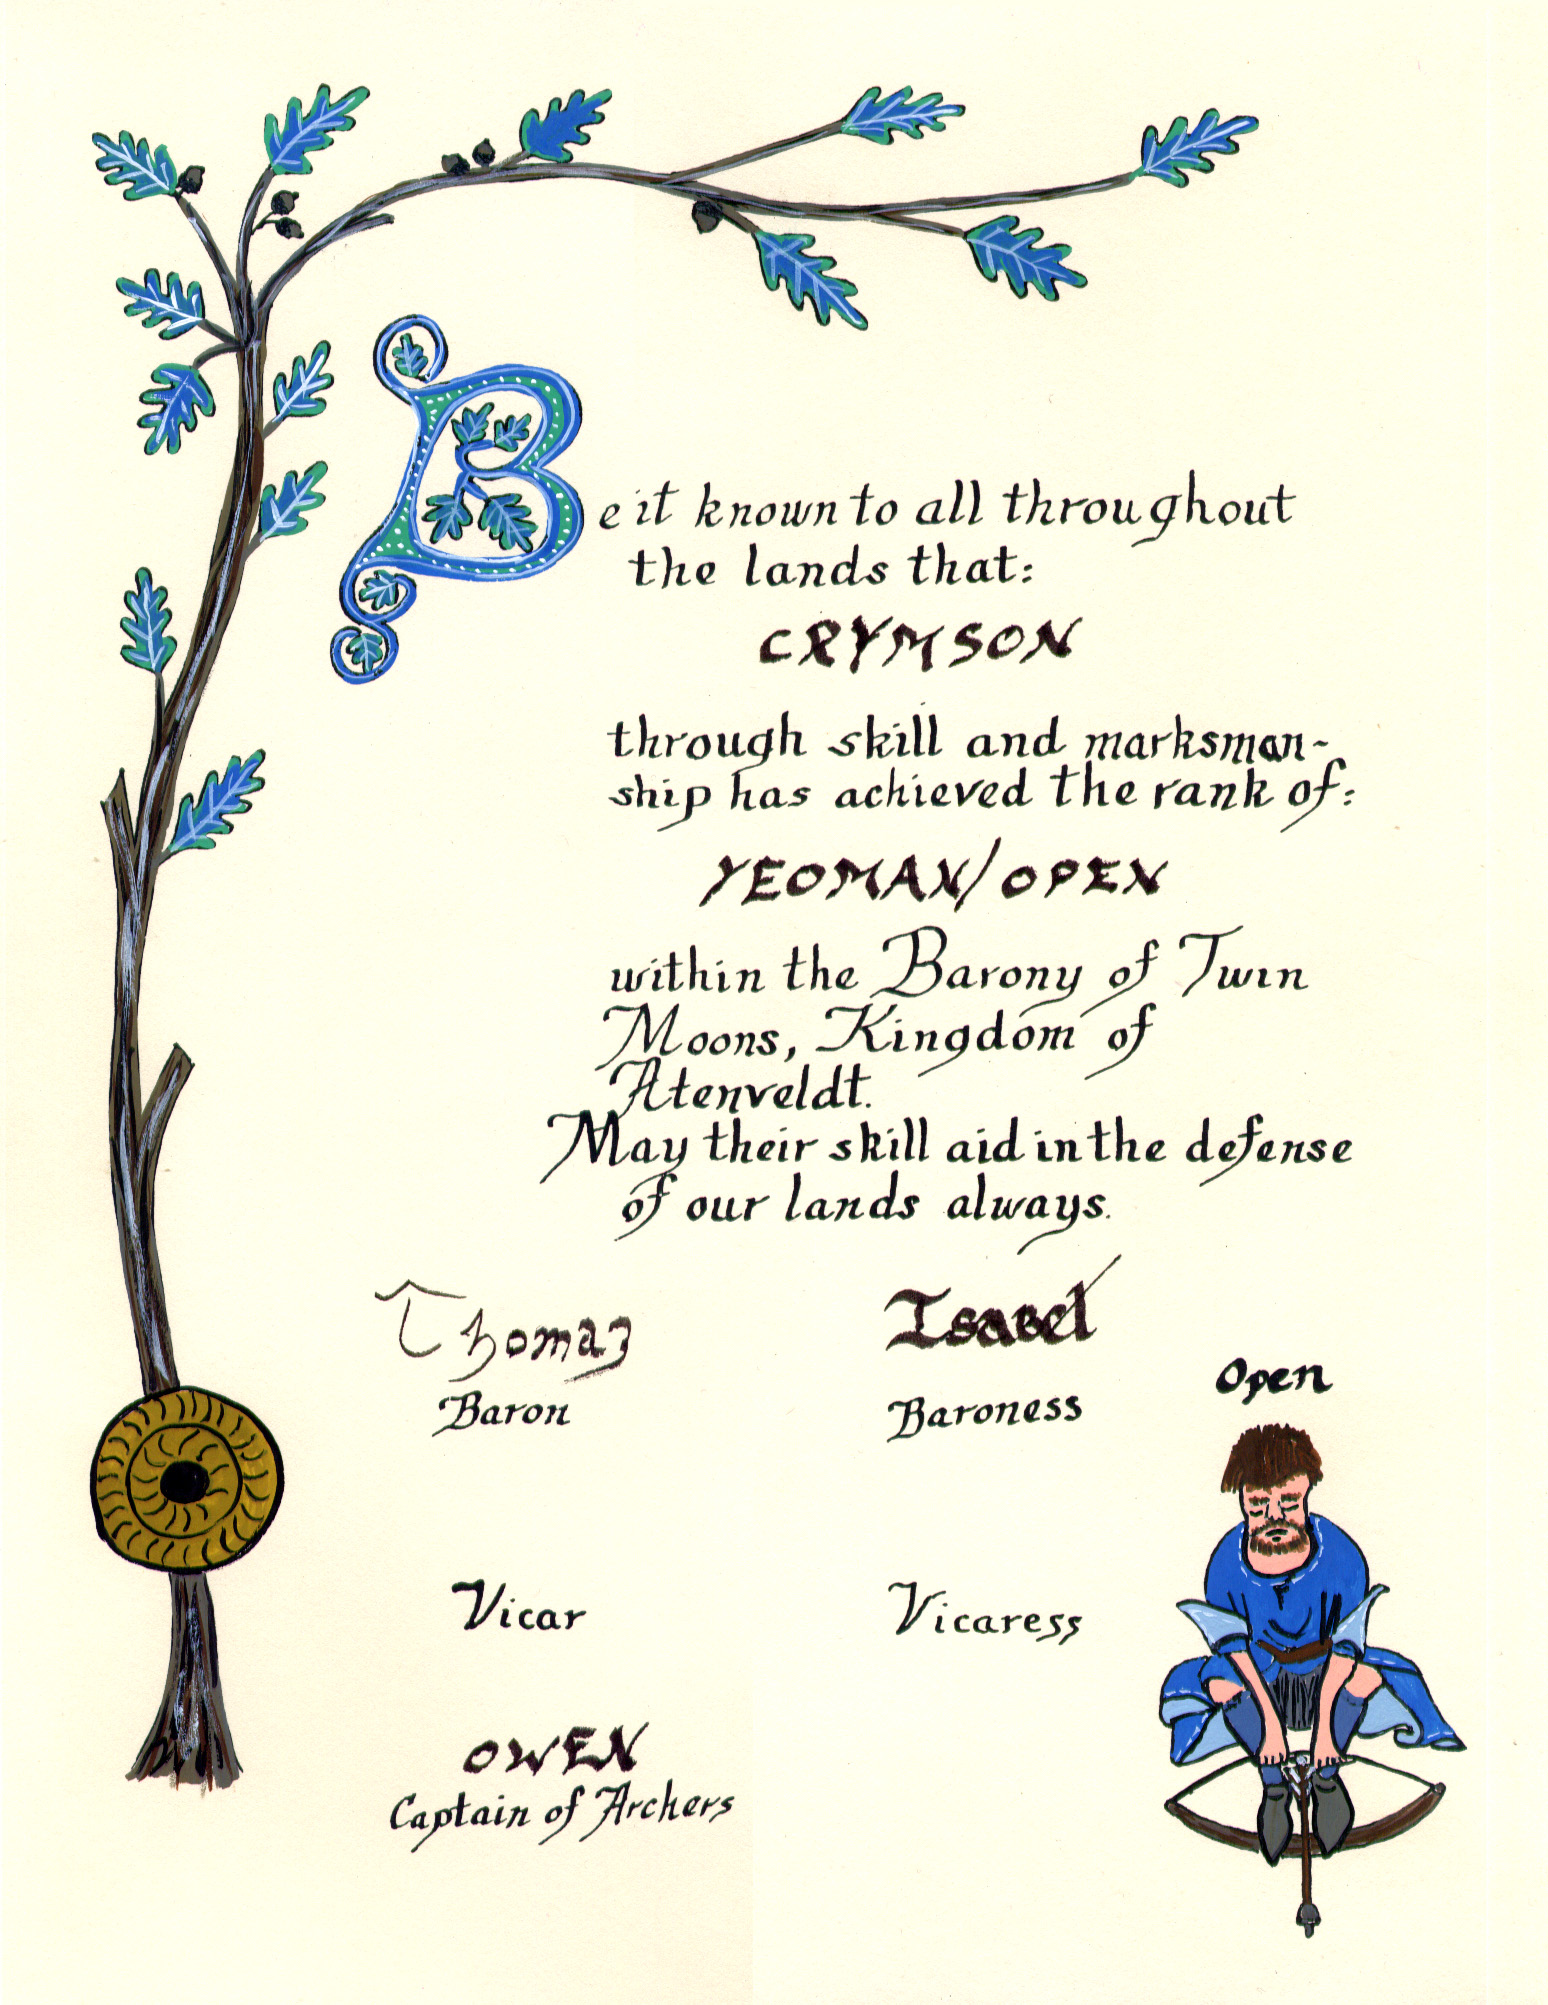 Be it known to all throughout
the lands that:
CRYMSON
through skill and marksman-
ship has achieved the rank of:
YEOMAN/OPEN
within the Barony of Twin
Moons, Kingdom of
Atenveldt.
May their skill aid in the defense
of our lands always.
Thomas Isabel
Baron Baroness
Open
Vicar Vicaress
OWEN
Captain of Archers